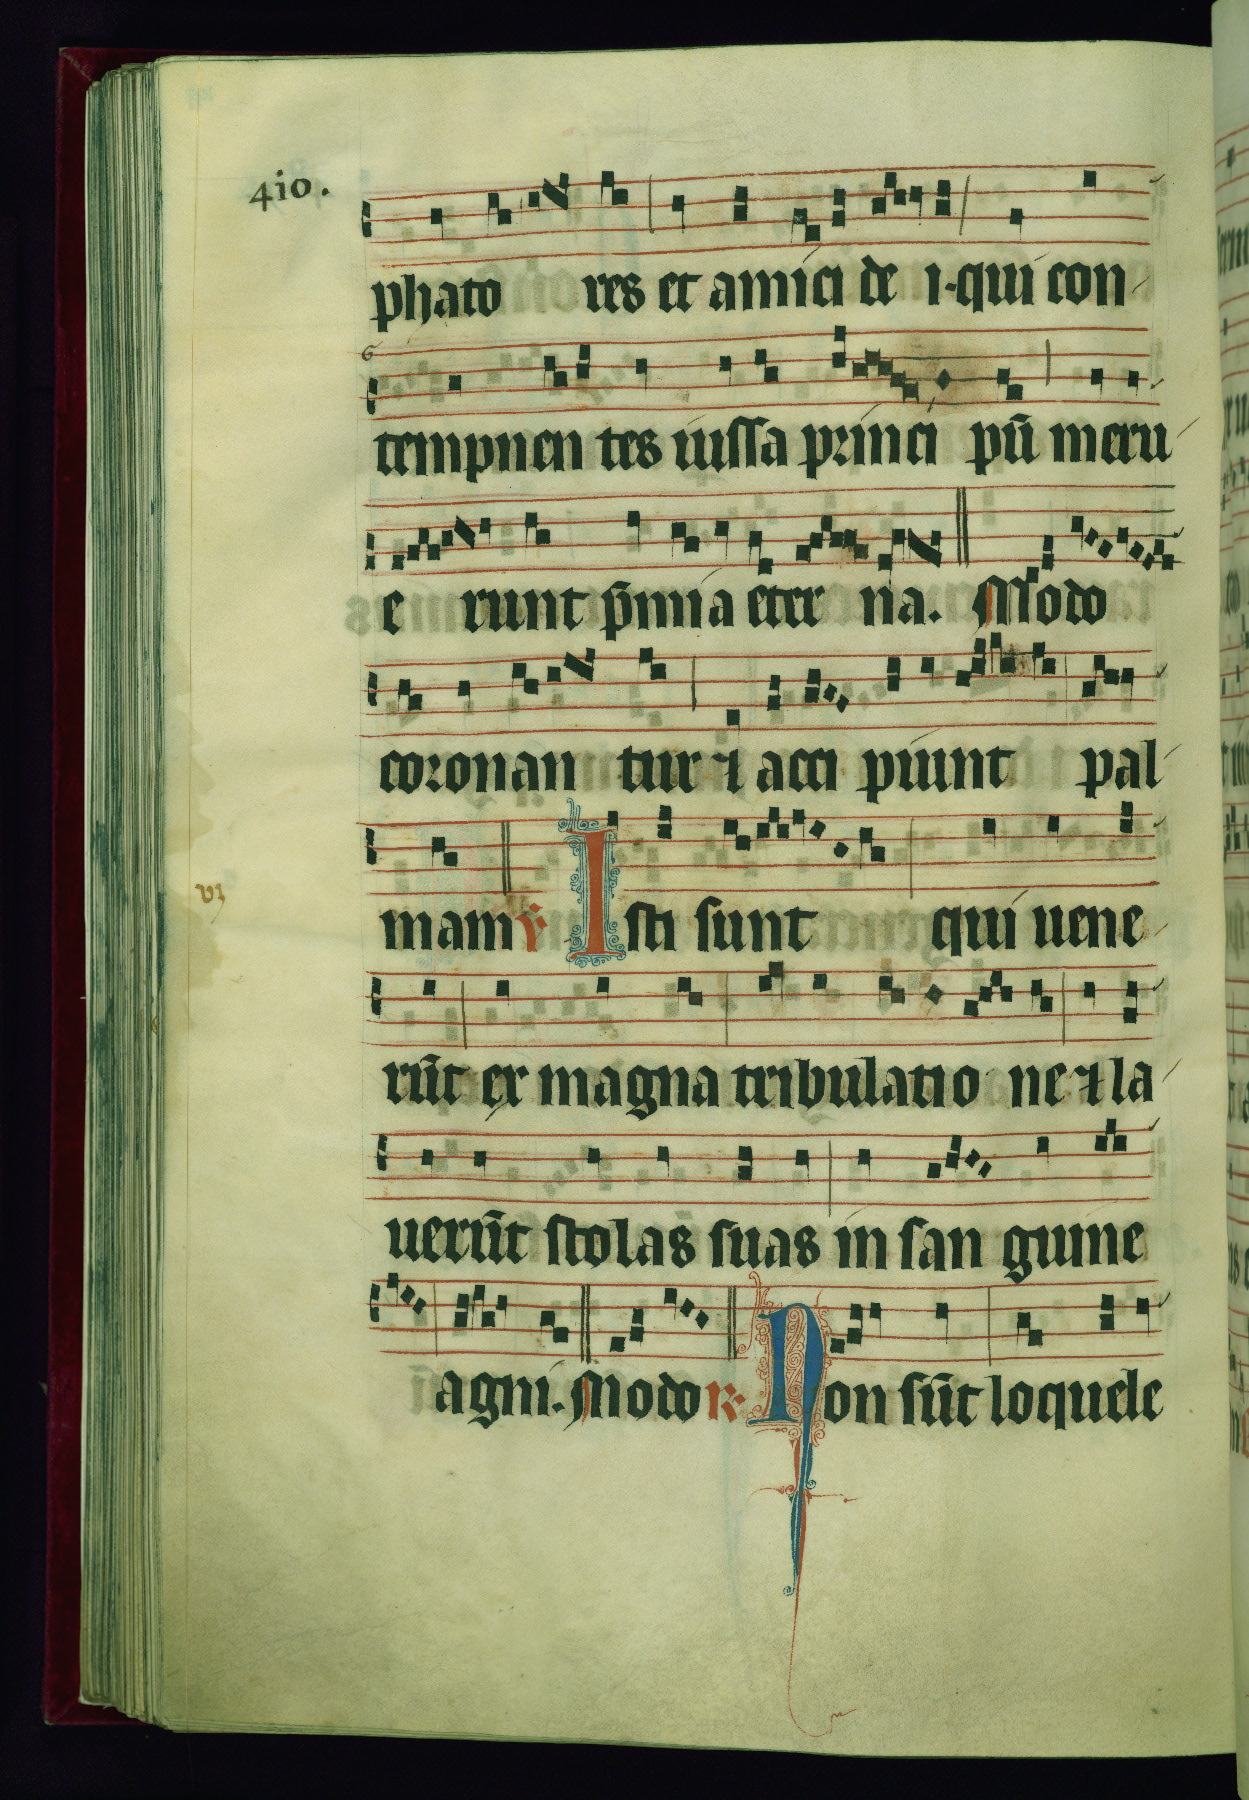 410.
phato res et amici de i·qui con
tempnen tes iussa princi pū meru
e runt p̄mia eter na. Modo
coronan tur ⁊ acci piunt pal
mam ℣ Isti sunt qui uene
rūt ex magna tribulatio ne ⁊ la
uerūt stolas suas in san guine
agni. Modo ℟ Non sūt loquele